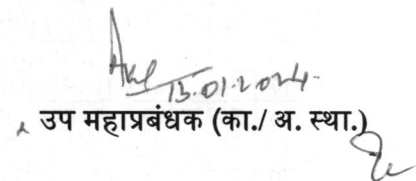 15.01.2024
उप महाप्रबंधक (का./ अ. स्था.)